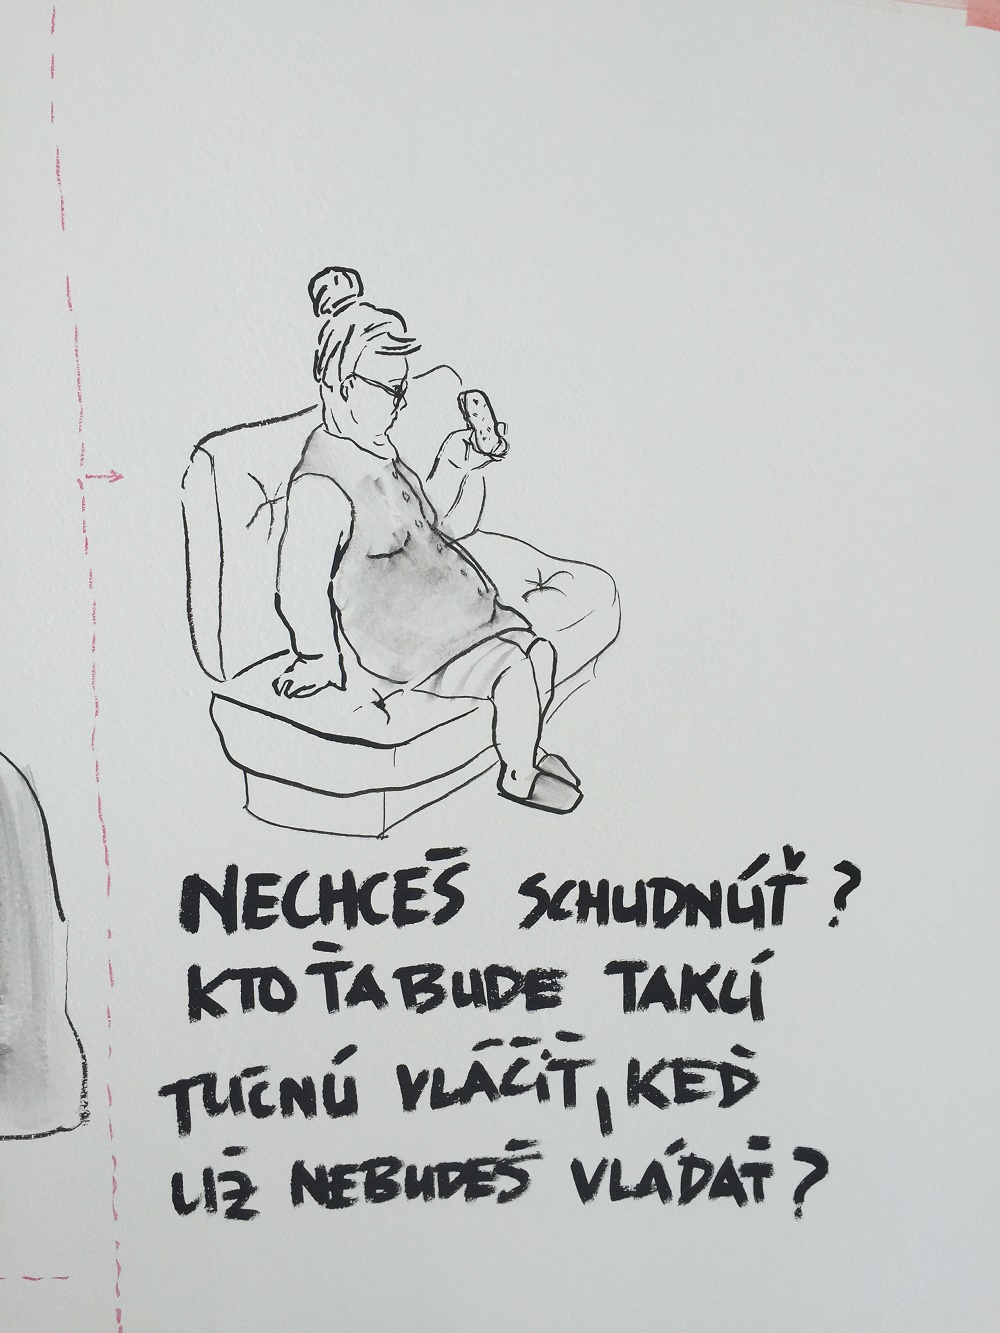 NECHCEŠ SCHUDNÚŤ?
KTO ŤA BUDE TAKÚ
TUČNÚ VLÁČIŤ, KEĎ
UŽ NEBUDEŠ VLÁDAŤ?